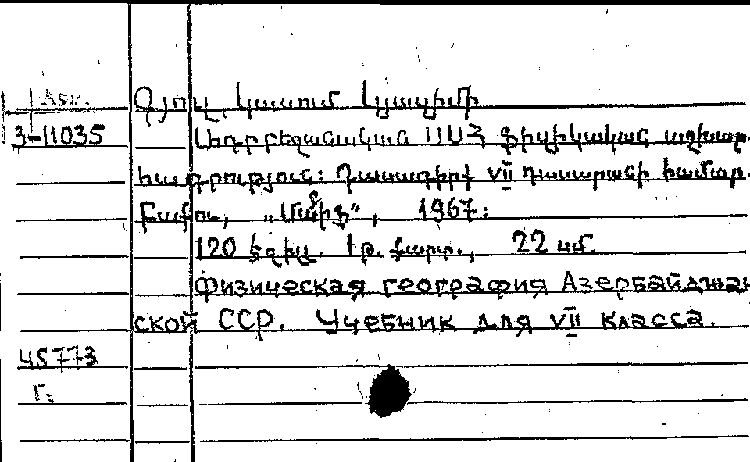 Азк.
Գյուլ, Կասում Կյազիմի
3-11035 Ադրբեջանական ՍՍՀ ֆիզիկական աշխար-
հագրություն: Դասագիրք VII դասարանի համար.
Բաքու, „Մաարիֆ”, 1967:
120 եջիլ. 1 թ. քարտ., 22 սմ.
Физическая география Азербайджан
ской ССР. Учебник для VII класса.
45773
Г.